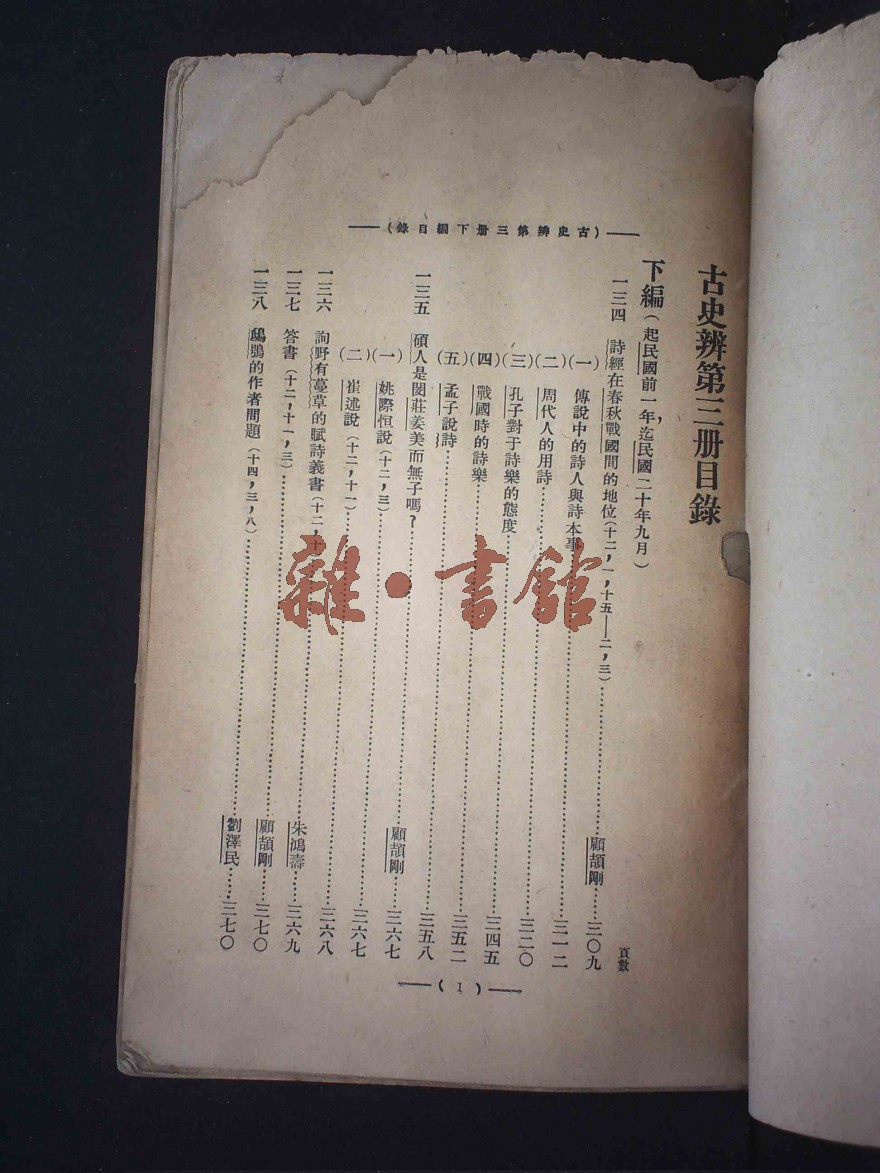 ——(古史辨第三册下編目錄)——
古史辨第三册目錄
下編(起民國前一年,迄民國二十年九月)
頁數
一三四 詩經在春秋戰國間的地位(十二,一,十五——二,三)……顧頡剛……三〇九
(一) 傳說中的詩人與詩本事……三一二
(二) 周代人的用詩……三二〇
(三) 孔子對于詩樂的態度……三四五
(四) 戰國時的詩樂……三五二
(五) 孟子說詩……三五八
一三五 碩人是閔莊姜美而無子嗎?……顧頡剛……三六七
(一) 姚際恒說(十二,三)……三六七
(二) 崔述說(十二,十一)……三六八
一三六 詢野有蔓草的賦詩義書(十二,十……朱鴻壽……三六九
一三七 答書(十二,十一,三)……顧頡剛……三七〇
一三八 鴟鴞的作者問題(十四,三,八)……劉澤民……三七〇
——(1)——
雜·書館